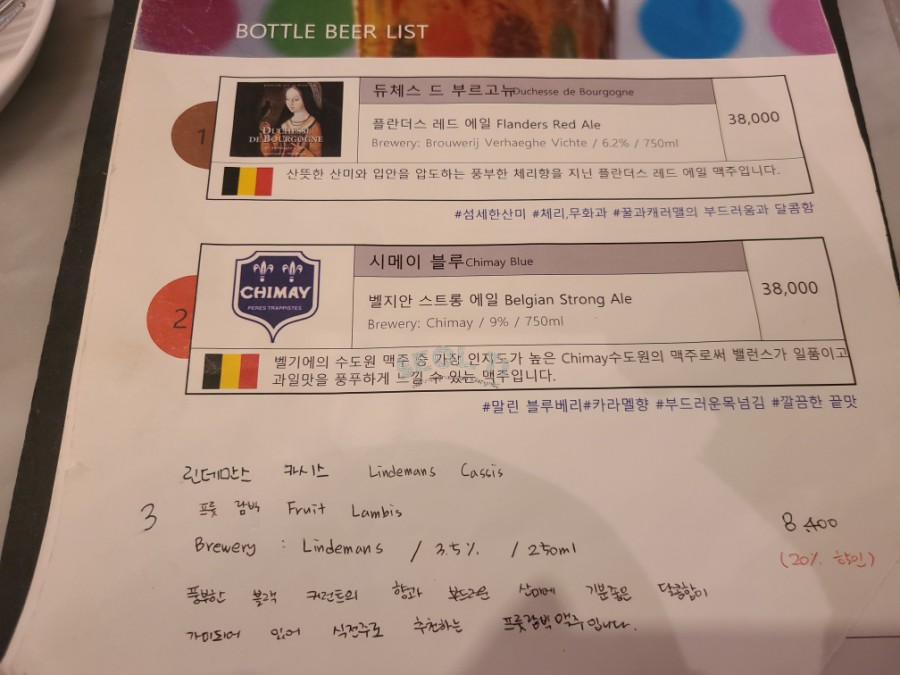 BOTTLE BEER LIST
1
DUCHESSE
DE BOURGOGNE
듀체스 드 부르고뉴 Duchesse de Bourgogne
플란더스 레드 에일 Flanders Red Ale
Brewery: Brouwerij Verhaeghe Vichte / 6.2% / 750ml
38,000
산뜻한 산미와 입안을 압도하는 풍부한 체리향을 지닌 플란더스 레드 에일 맥주입니다.
#섬세한산미 #체리,무화과 #꿀과캐러멜의 부드러움과 달콤함
2
CHIMAY
PERES TRAPPISTES
시메이 블루 Chimay Blue
벨지안 스트롱 에일 Belgian Strong Ale
Brewery: Chimay / 9% / 750ml
38,000
벨기에의 수도원 맥주 중 가장 인지도가 높은 Chimay수도원의 맥주로써 밸런스가 일품이고
과일맛을 풍푸하게 느낄 수 있는 맥주입니다.
#말린 블루베리#카라멜향 #부드러운목넘김 #깔끔한 끝맛
3
린데만스 카시스 Lindemans Cassis
프룻 람빅 Fruit Lambis
Brewery : Lindemans / 3.5% / 250ml
8,400
(20% 할인)
풍부한 블랙 커런트의 향과 부드러운 산미에 기분좋은 달콤함이
가미되어 있어 식전주로 추천하는 프룻람빅맥주입니다.